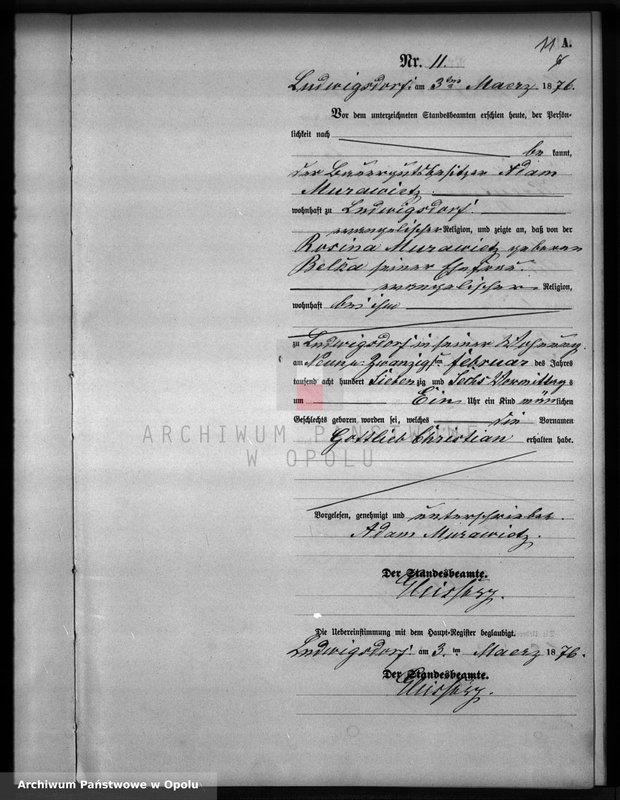 11 A.
8
Nr. 11.
Ludwigsdorf, am 3ten Maerz 1876.
Vor dem unterzeichneten Standesbeamten erschien heute, der Persön-
lichkeit nach
be kannt,
der Bauergutsbesitzer Adam
Murawietz
wohnhaft zu Ludwigsdorf
evangelischer Religion, und zeigte an, daß von der
Rosina Murawietz geboren
Belka seiner Ehefrau
evangelischer Religion,
wohnhaft bei ihm
zu Ludwigsdorf in seiner Wohnung
am Neun u. Zwanzigsten Februar des Jahres
tausend acht hundert Siebenzig und Sechs Vormittags
um Ein Uhr ein Kind männlichen
Geschlechts geboren worden sei, welches die Vornamen
Gottlieb Christian erhalten habe.
ARCHIWUM PAŃSTWOWE
W OPOLU
Vorgelesen, genehmigt und unterschrieben
Adam Murawietz.
Der Standesbeamte.
Die Uebereinstimmung mit dem Haupt-Register beglaubigt.
Ludwigsdorf am 3.ten Maerz 1876.
Der Standesbeamte.
Archiwum Państwowe w Opolu